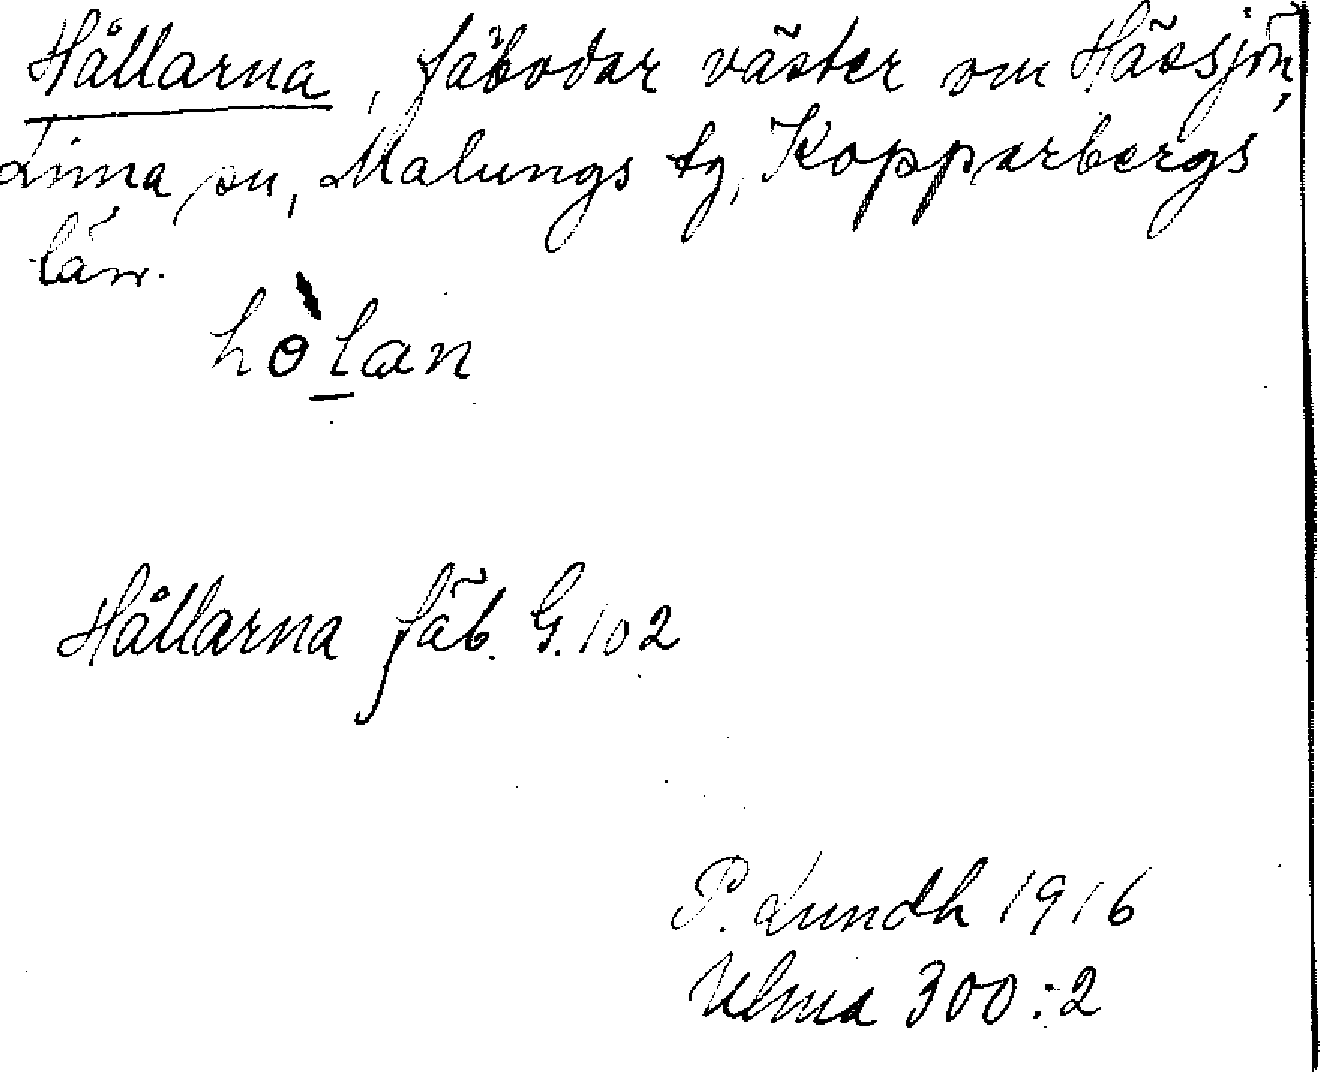 Hållarna, fäbodar väster om Häesjön,
Lima sn, Malungs tg, Kopparbergs
län.
hòlan
Hållarna fäb. G. 102
P. Lundh 1916
Ulma 300:2